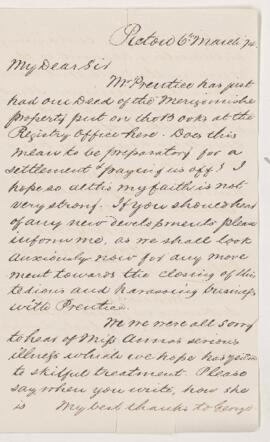 Pictou 6th March 74.
My Dear Sir
Mr Prentice has just
had our Deed of the Merigomishe
property put on the Books at the
Registry Office here. Does this
mean to be preparatory for a
settlement & paying us off? I
hope so altho my faith is not
very strong. If you should hear
of any new developments please
inform me, as we shall look
anxiously now for any move
ment towards the closing of this
tedious and harassing business
with Prentice.
We were all sorry
to hear of Miss Anna's serious
illness which we hope has yielded
to skilful treatment. Please
say when you write, how she
is My best thanks to George